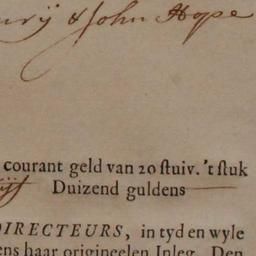 & John Hope
courant geld van 20 ſtuiv. 't ſtuk
Duizend guldens
DIRECTEURS, in tyd en wyle
ens haar origineelen Inleg. Den